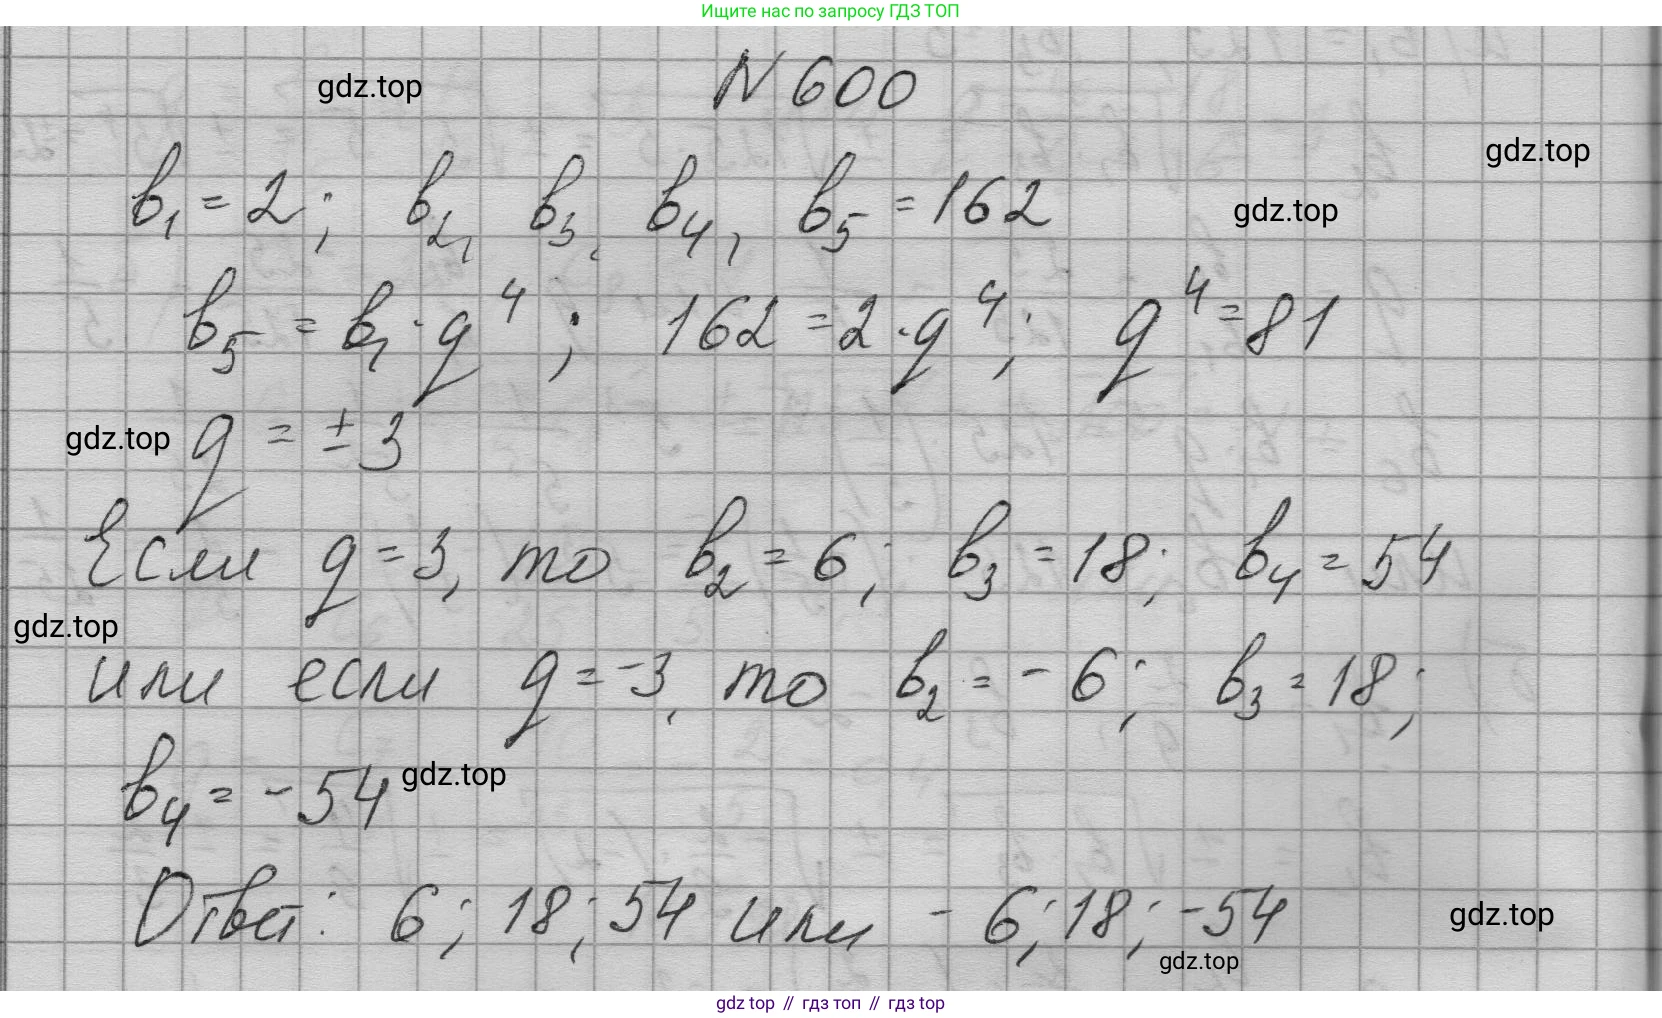 Ищите нас по запросу ГДЗ ТОП
gdz.top
N 600
gdz.top
b₁ = 2; b₂, b₃, b₄, b₅ = 162
gdz.top
b₅ = b₁ · q⁴; 162 = 2 · q⁴; q⁴ = 81
gdz.top
q = ± 3
Если q = 3, то b₂ = 6; b₃ = 18; b₄ = 54
gdz.top
или если q = -3, то b₂ = -6; b₃ = 18;
b₄ = -54
gdz.top
Ответ: 6; 18; 54 или -6; 18; -54
gdz.top
gdz.top
gdz top // гдз топ // гдз top